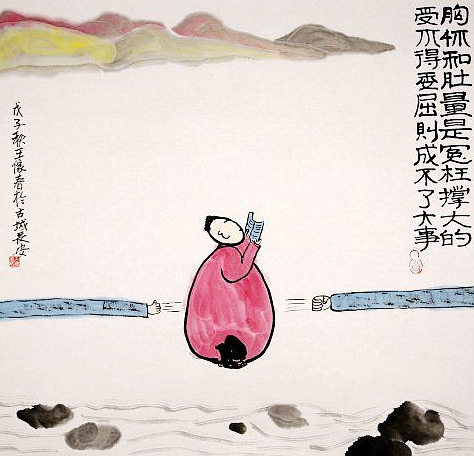 胸怀和肚量是冤枉撑大的
受不得委屈則成不了大事
戊子秋王於古城長安